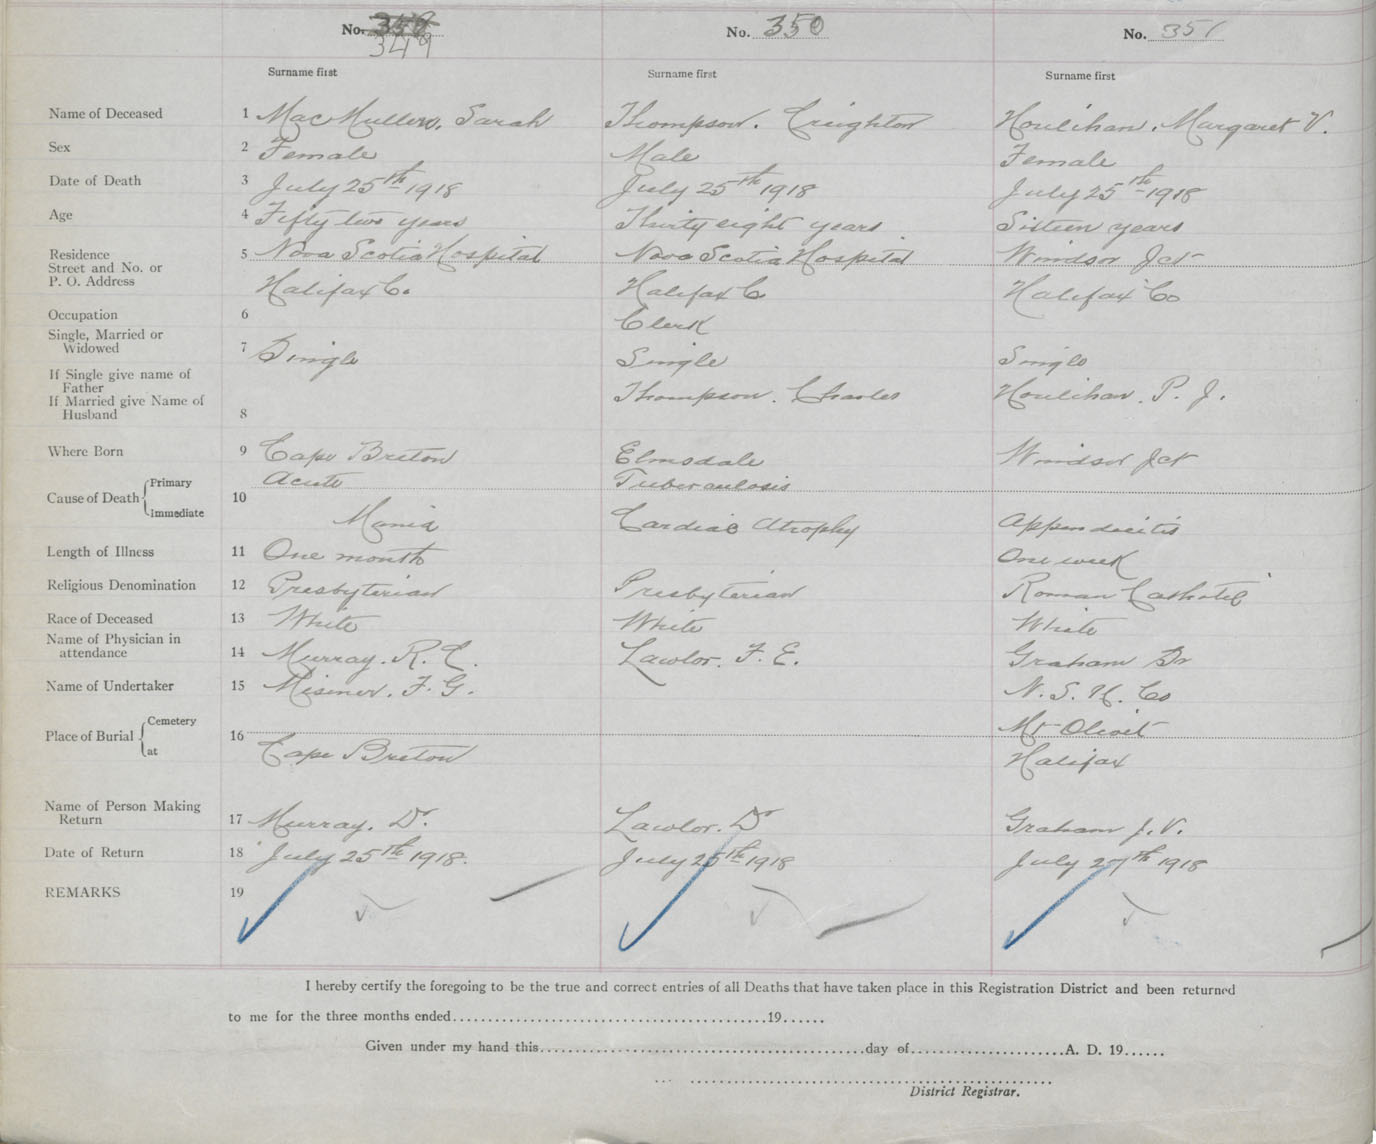 No. 349 No. 350 No. 351
Surname first Surname first Surname first
Name of Deceased 1 MacMullen, Sarah Thompson, Creighton Houlihan, Margaret V.
Sex 2 Female Male Female
Date of Death 3 July 25th 1918 July 25th 1918 July 25th 1918
Age 4 Fifty two years Thirty eight years Sixteen years
Residence
Street and No. or 5 Nova Scotia Hospital Nova Scotia Hospital Windsor Jct
P. O. Address Halifax Co. Halifax Co Halifax Co
Occupation 6 Clerk
Single, Married or
Widowed 7 Single Single Single
If Single give name of
Father Thompson, Charles Houlihan, P. J.
If Married give Name of
Husband 8
Where Born 9 Cape Breton Elmsdale Windsor Jct
Primary Acute Tuberculosis
Cause of Death 10
Immediate Mania Cardiac Atrophy Appendicitis
Length of Illness 11 One month One week
Religious Denomination 12 Presbyterian Presbyterian Roman Catholic
Race of Deceased 13 White White White
Name of Physician in
attendance 14 Murray, R. E. Lawlor, F. E. Graham Dr
Name of Undertaker 15 Misener, F. G. N. S. U. Co
Cemetery Mt Olivet
Place of Burial 16
at Cape Breton Halifax
Name of Person Making
Return 17 Murray, Dr. Lawlor, Dr Graham J. V.
Date of Return 18 July 25th 1918. July 25th 1918 July 27th 1918
REMARKS 19
I hereby certify the foregoing to be the true and correct entries of all Deaths that have taken place in this Registration District and been returned
to me for the three months ended 19
Given under my hand this day of A. D. 19
District Registrar.